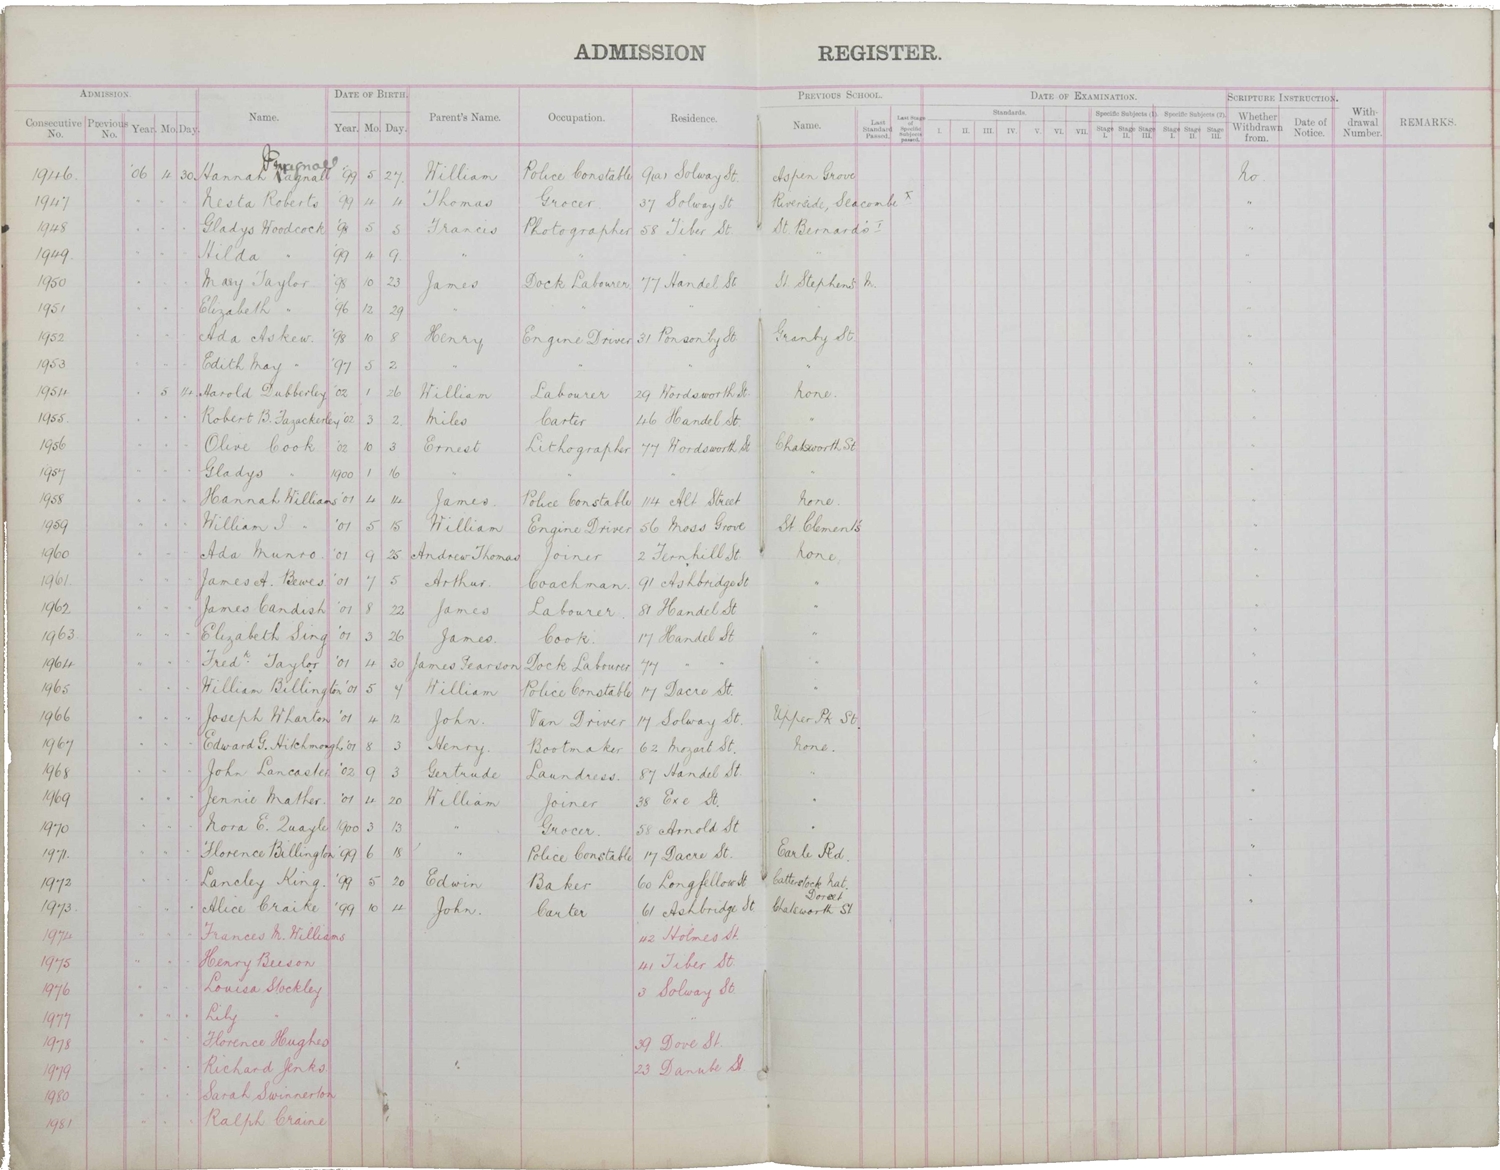 ADMISSION REGISTER.
ADMISSION. DATE OF BIRTH. PREVIOUS SCHOOL. DATE OF EXAMINATION. SCRIPTURE INSTRUCTION.
Consecutive No. Previous No. Year. Mo. Day. Name. Year. Mo. Day. Parent's Name. Occupation. Residence. Name. Last Standard Passed. Last Stage of Specific Subjects passed. Standards. I. II. III. IV. V. VI. VII. Specific Subjects (1). Stage I. Stage II. Stage III. Specific Subjects (2). Stage I. Stage II. Stage III. Whether Withdrawn from. Date of Notice. With-drawal Number. REMARKS.
Pragnall
1946. '06 4 30. Hannah Pagnall '99 5 27. William Police Constable Solway St. Aspen Grove No
1947 " " " Nesta Roberts '99 4 4 Thomas Grocer 37 Solway St Riverside, Seacombe "
1948 " " " Gladys Woodcock '98 5 5 Francis Photographer 58 Tiber St. St Bernard's "
1949. " " " Hilda " '99 4 9. " " " " "
1950 " " " Mary Taylor '98 10 23 James Dock Labourer 77 Handel St St Stephen's M. "
1951 " " " Elizabeth " '96 12 29 " " " "
1952 " " " Ada Askew. '98 10 8 Henry Engine Driver 31 Ponsonby St. Granby St. "
1953 " " " Edith May " '97 5 2 " " " " "
1954 " 5 14. Harold Dubberley '02 1 26 William Labourer 29 Wordsworth St. None. "
1955. " " " Robert B. Fazackerley '02 3 2. Miles Carter 46 Handel St. " "
1956 " " " Olive Cook '02 10 3 Ernest Lithographer 77 Wordsworth St Chatsworth St "
1957 " " " Gladys " 1900 1 16 " " " " "
1958 " " " Hannah Williams '01 4 14 James. Police Constable 114 Alt Street None. "
1959 " " " William J. " '01 5 15 William Engine Driver 56 Moss Grove St Clement's "
1960 " " " Ada Munro. '01 9 25 Andrew Thomas Joiner 2 Fernhill St None. "
1961. " " " James A. Bewes. '01 7 5 Arthur. Coachman. 91 Ashbridge St " "
1962 " " " James Candish '01 8 22 James Labourer. 81 Handel St " "
1963. " " " Elizabeth Sing '01 3 26 James. Cook. 17 Handel St " "
1964 " " " Fredk. Taylor '01 4 30 James Pearson Dock Labourer 77 " " " "
1965 " " " William Billington '01 5 7 William Police Constable 17 Dacre St. " "
1966 " " " Joseph Wharton '01 4 12 John. Van Driver 17 Solway St. Upper Pk St. "
1967 " " " Edward G. Hitchmough '01 8 3 Henry. Bootmaker 62 Mozart St. None. "
1968 " " " John Lancaster '02 9 3 Gertrude Laundress. 87 Handel St. " "
1969 " " " Jennie Mather. '01 4 20 William Joiner 38 Exe St. " "
1970 " " " Nora E. Quayle 1900 3 13 " Grocer. 58 Arnold St " "
1971. " " " Florence Billington '99 6 18 " Police Constable 17 Dacre St. Earle Rd. "
1972 " " " Lancley King. '99 5 20 Edwin Baker 60 Longfellow St Catterstock Nat. Dorset "
1973. " " " Alice Craike '99 10 4 John. Carter 61 Ashbridge St Chatsworth St "
1974 " " " Frances M. Williams 42 Holmes St.
1975 " " " Henry Beeson 41 Tiber St.
1976 " " " Louisa Stockley 3 Solway St.
1977 " " " Lily " "
1978 " " " Florence Hughes 39 Dove St.
1979 " " " Richard Jenks. " 23 Danube St
1980 " " " Sarah Swinnerton
1981 " " " Ralph Craine